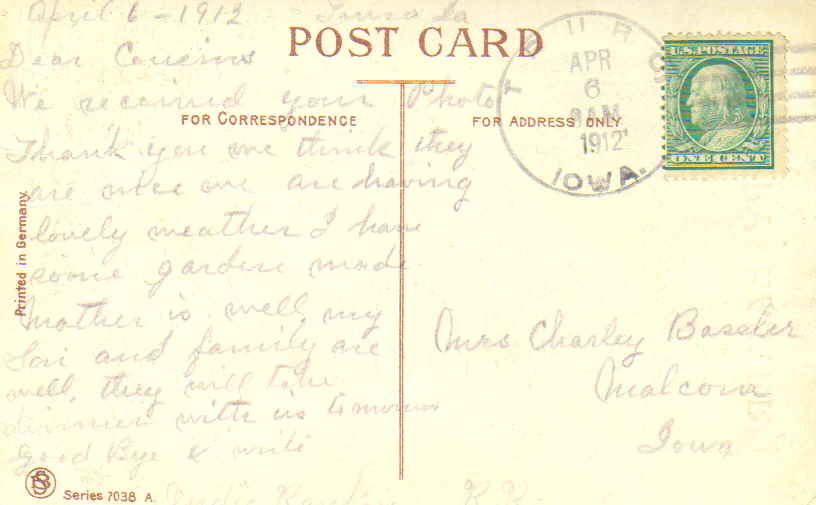 April 6 - 1912
POST CARD
Dear Cousins
We received your Photos
FOR CORRESPONDENCE
FOR ADDRESS ONLY
Thank you we think they
are nice we are having
lovely weather I have
some garden made
Mother is well my
Son and family are
well, they will take
dinner with us tomorrow
Good Bye & write
Printed in Germany.
Series 7038 A.
APR
6
AM
1912
IOWA.
U.S. POSTAGE
ONE CENT
Mrs Charley Baseler
Malcom
Iowa